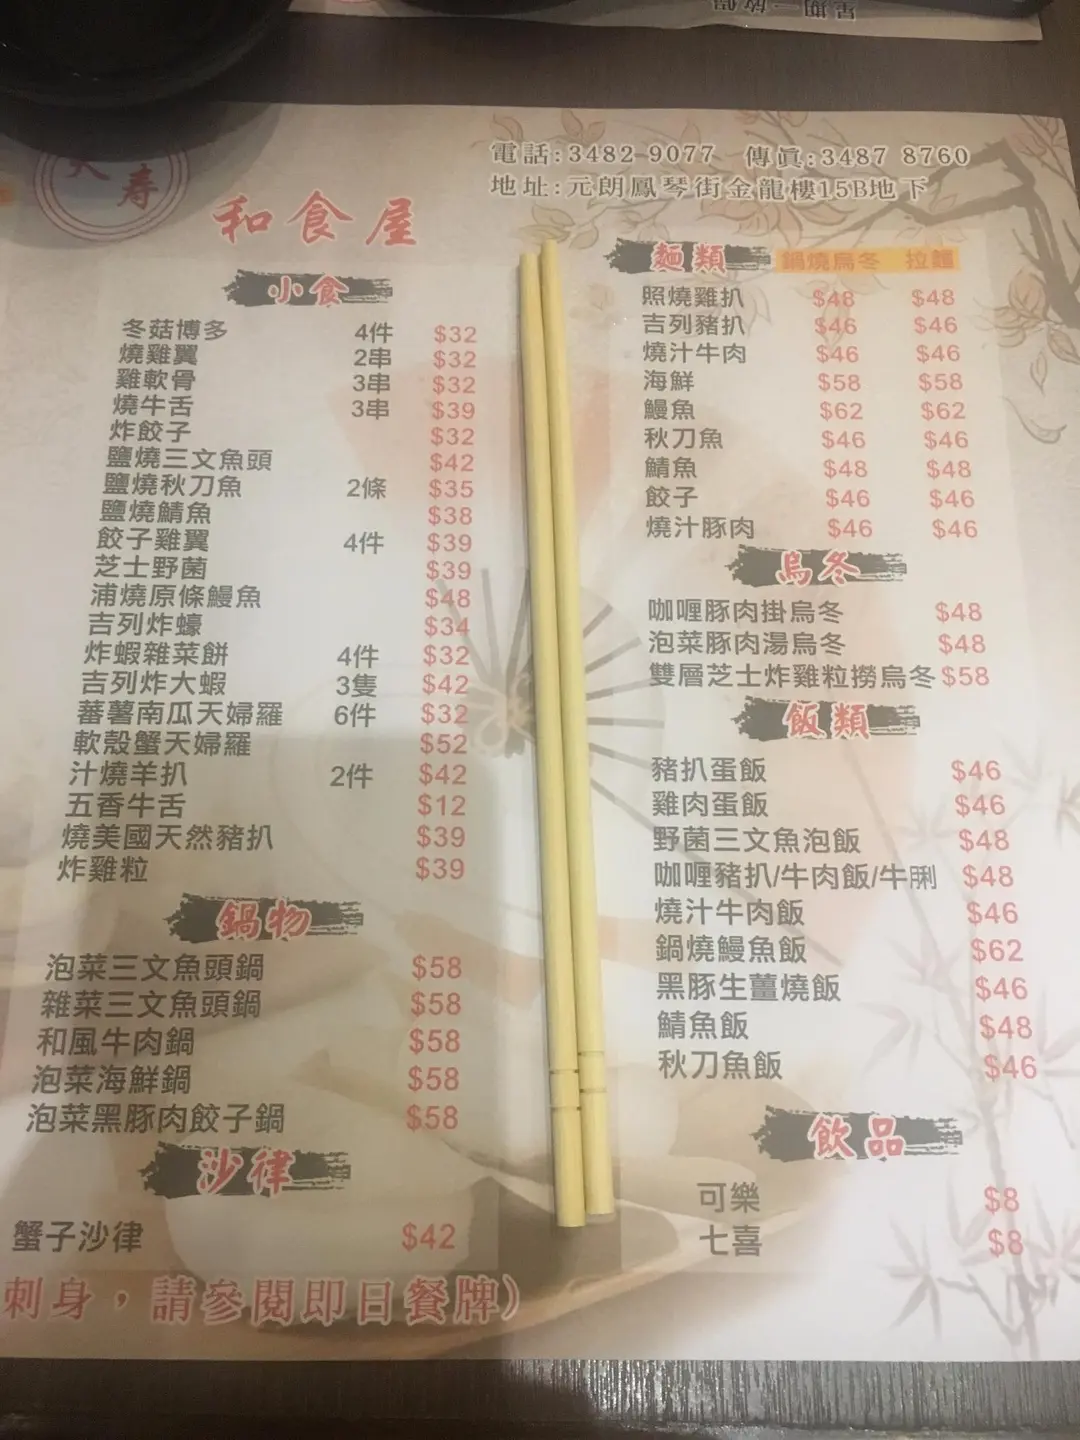 星期一放假
大
寿
和食屋
電話:3482 9077 傳眞:3487 8760
地址:元朗鳳琴街金龍樓15B地下
小食
冬菇博多 4件 $32
燒雞翼 2串 $32
雞軟骨 3串 $32
燒牛舌 3串 $39
炸餃子 $32
鹽燒三文魚頭 $42
鹽燒秋刀魚 2條 $35
鹽燒鯖魚 $38
餃子雞翼 4件 $39
芝士野菌 $39
浦燒原條鰻魚 $48
吉列炸蠔 $34
炸蝦雜菜餅 4件 $32
吉列炸大蝦 3隻 $42
蕃薯南瓜天婦羅 6件 $32
軟殼蟹天婦羅 $52
汁燒羊扒 2件 $42
五香牛舌 $12
燒美國天然豬扒 $39
炸雞粒 $39
鍋物
泡菜三文魚頭鍋 $58
雜菜三文魚頭鍋 $58
和風牛肉鍋 $58
泡菜海鮮鍋 $58
泡菜黑豚肉餃子鍋 $58
沙律
蟹子沙律 $42
麵類 鍋燒烏冬 拉麵
照燒雞扒 $48 $48
吉列豬扒 $46 $46
燒汁牛肉 $46 $46
海鮮 $58 $58
鰻魚 $62 $62
秋刀魚 $46 $46
鯖魚 $48 $48
餃子 $46 $46
燒汁豚肉 $46 $46
烏冬
咖喱豚肉掛烏冬 $48
泡菜豚肉湯烏冬 $48
雙層芝士炸雞粒撈烏冬 $58
飯類
豬扒蛋飯 $46
雞肉蛋飯 $46
野菌三文魚泡飯 $48
咖喱豬扒/牛肉飯/牛脷 $48
燒汁牛肉飯 $46
鍋燒鰻魚飯 $62
黑豚生薑燒飯 $46
鯖魚飯 $48
秋刀魚飯 $46
飲品
可樂 $8
七喜 $8
刺身，請參閱即日餐牌)